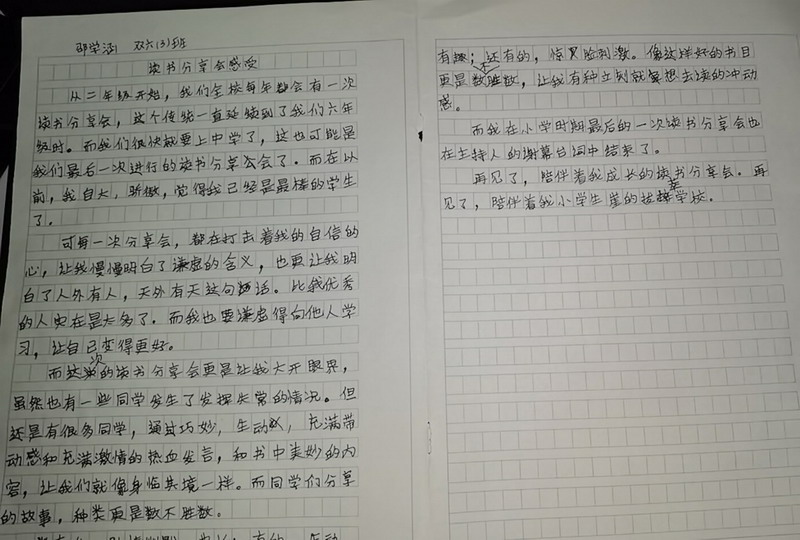 邵学涵 双六(3)班
读书分享会感受
从二年级开始，我们全校每年都会有一次
读书分享会，这个传统一直延续到了我们六年
级时。而我们很快就要上中学了，这也可能是
我们最后一次进行的读书分享会了。而在以
前，我自大，骄傲，觉得我已经是最棒的学生
了。
可每一次分享会，都在打击着我的自信的
心，让我慢慢明白了谦虚的含义，也更让我明
白了人外有人，天外有天这句话。比我优秀
的人实在是太多了。而我也要谦虚得向他人学
习，让自己变得更好。
而这次的读书分享会更是让我大开眼界，
虽然也有一些同学发生了发挥失常的情况。但
还是有很多同学，通过巧妙，生动，充满带
动感和充满激情的热血发言，和书中美妙的内
容，让我们就像身临其境一样。而同学们分享
的故事，种类更是数不胜数。
有趣；还有的，惊灵脸刺激。像这样好的书目
更是数不胜数，让我有种立刻就要想去读的冲动
感。
而我在小学时期最后的一次读书分享会也
在主持人的谢幕台词中结束了。
再见了，陪伴着我成长的读书分享会。再
见了，陪伴着我小学生涯的技校。